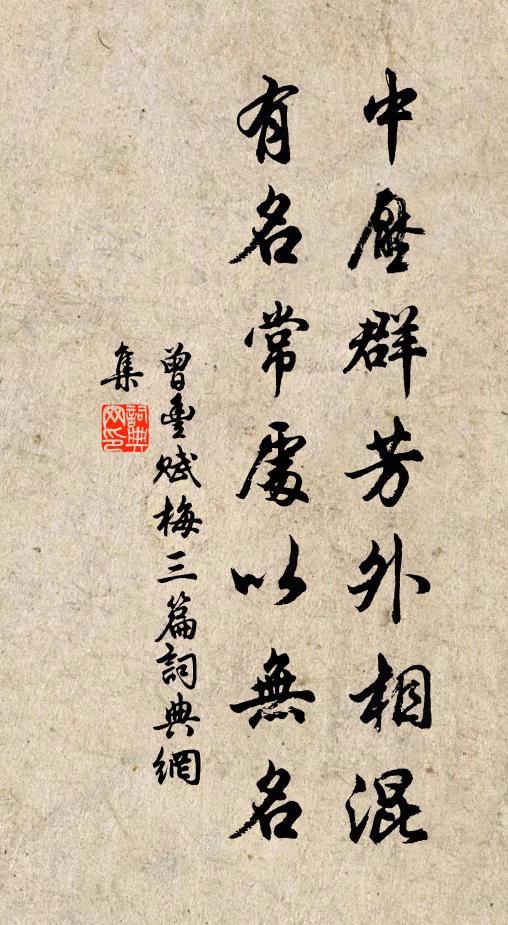 中壓群芳外相混
有名常處以無名
曾豊賦梅三篇詞典網
集
詞典
網印